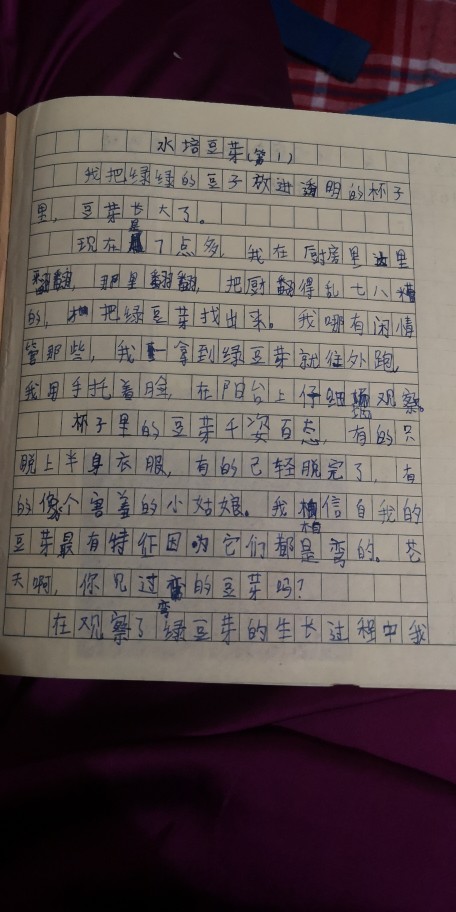 水培豆芽(第1)
我把绿绿的豆子放进透明的杯子
里,豆芽长大了。
现在是了点多,我在厨房里这里
翻翻,那里翻翻,把厨翻得乱七八糟
的,才把绿豆芽找出来。我哪有闲情
管那些,我一拿到绿豆芽就往外跑,
我用手托着脸,在阳台上仔细观察。
杯子里的豆芽千姿百态,有的只
脱上半身衣服,有的己轻脱完了,有
的像个害羞的小姑娘。我相信自我的
豆芽最有特征因为它们都是弯的。苍
天啊,你见过弯的豆芽吗?
在观察了绿豆芽的生长过程中我